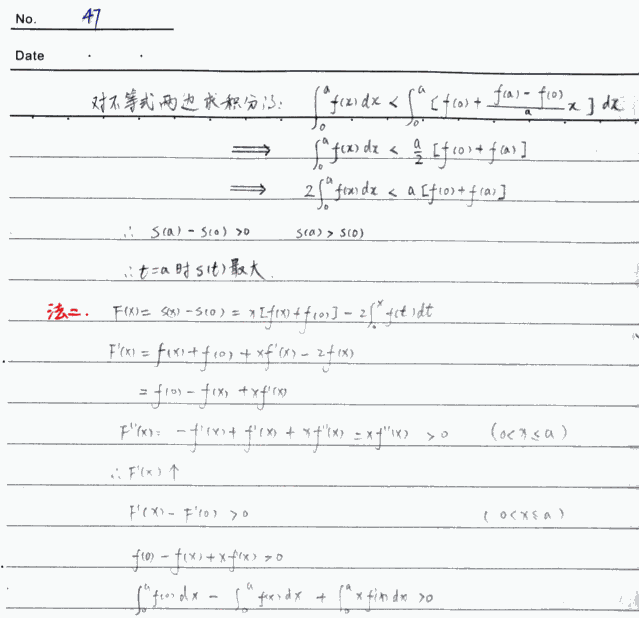 No. 47
Date . .
对不等式两边求积分得: ∫₀ᵃ f(x)dx < ∫₀ᵃ [f(0) + (f(a) - f(0))/a x] dx
⟹ ∫₀ᵃ f(x)dx < a/2 [f(0) + f(a)]
⟹ 2∫₀ᵃ f(x)dx < a[f(0) + f(a)]
∴ S(a) - S(0) > 0 S(a) > S(0)
∴ t=a 时 S(t) 最大.
法二. F(x) = S(x) - S(0) = x[f(x) + f(0)] - 2∫₀ˣ f(t)dt
F'(x) = f(x) + f(0) + xf'(x) - 2f(x)
= f(0) - f(x) + xf'(x)
F''(x) = -f'(x) + f'(x) + xf''(x) = xf''(x) > 0 (0<x≤a)
∴ F'(x) ↑
F'(x) - F'(0) > 0 (0<x≤a)
f(0) - f(x) + xf'(x) > 0
∫₀ᵃ f(0)dx - ∫₀ᵃ f(x)dx + ∫₀ᵃ xf'(x)dx > 0